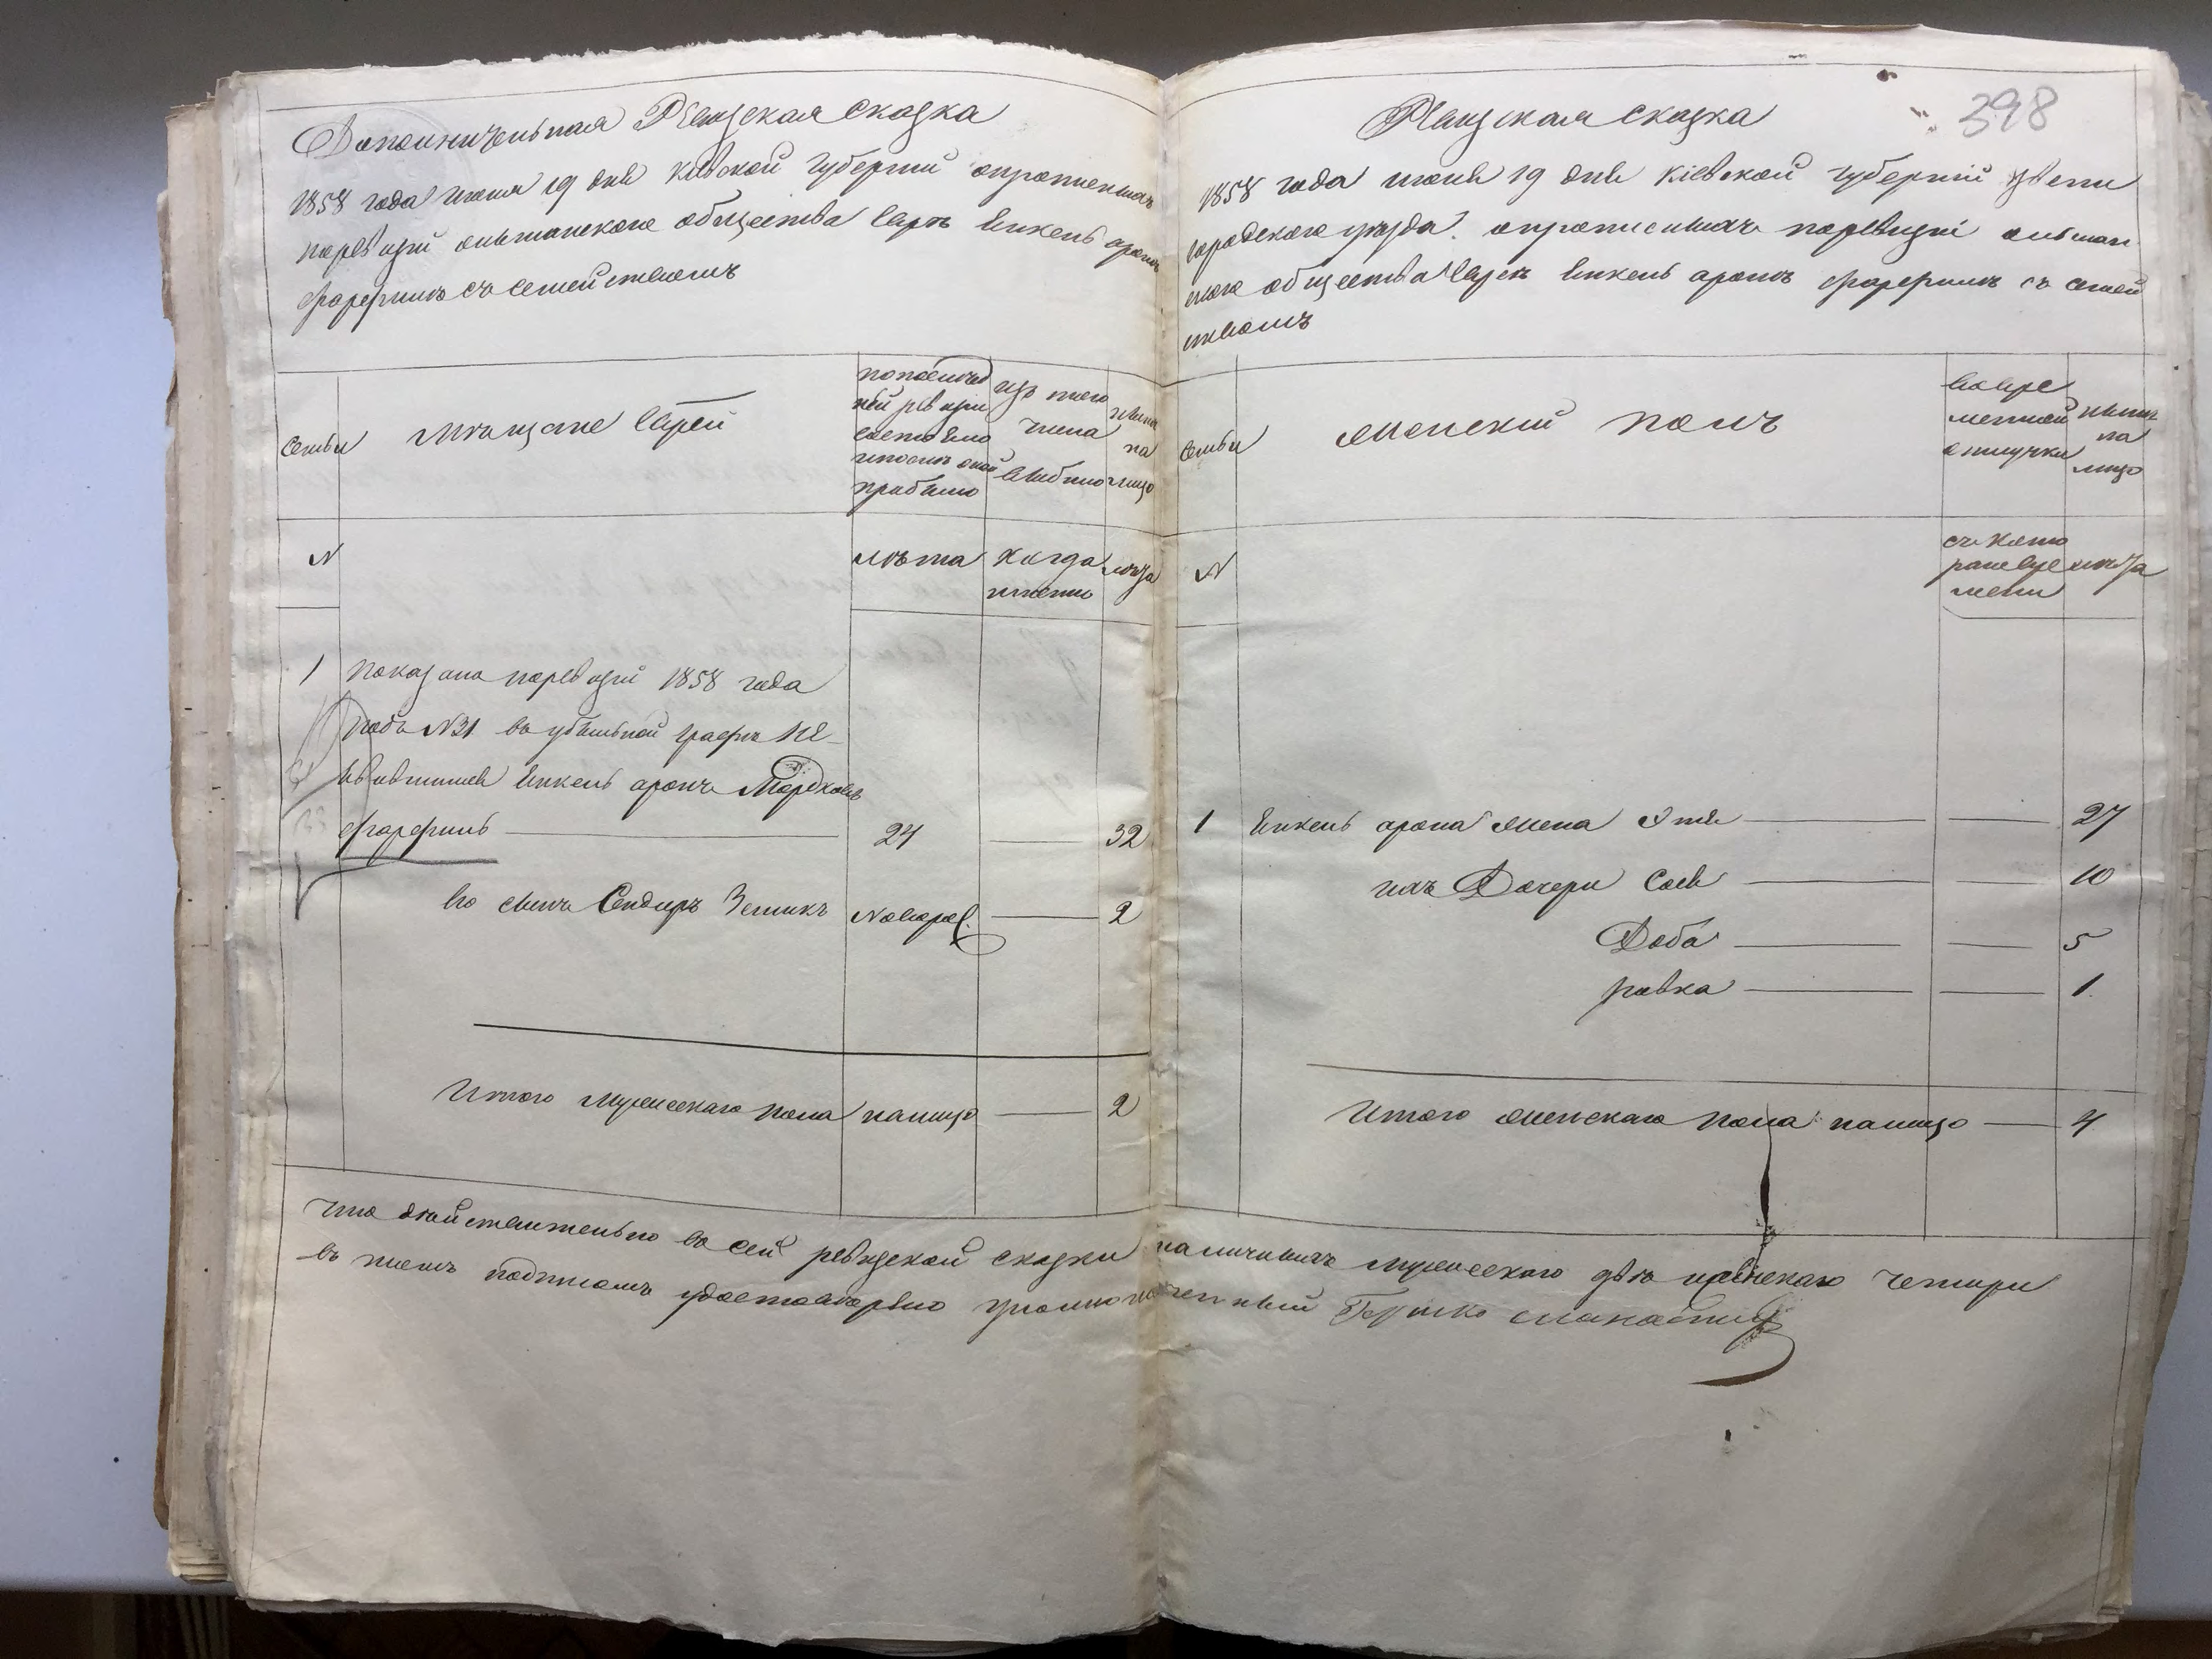 Дополнительная Ревизская сказка
1858 года июня 19 дня Кіевской губерніи о прописныхъ
по ревизіи ольшанского общества Еврѣ Янкель аронъ
фарфинъ съ Семействомъ
Семьи
Мѣщане Еврѣи
по последней ревизіи состояло и после оной прибыло
изъ того числа выбыло
ныне на лицо
N
лѣта
когда именно
лѣта
1 Показано по ревизіи 1858 года
подъ N 31 въ убыльной графѣ не
явившимся Янкель аронъ Мордковъ
фарфинъ 24 32
Его сынъ Сендеръ Зеликъ Новорож. 2
Итого мужескаго пола на лицо 2
Ревизская сказка 398
1858 года июня 19 дня Кіевской губерніи звени
городского уезда о прописныхъ по ревизіи ольшан
ского общества Еврея Янкель аронъ фарфинъ съ семей
ствомъ
Семьи
женскій полъ
во временной отлучки
ныне на лицо
N
съ которого времени
лѣта
1 Янкель арона жена Этя 27
ихъ Дочери Сося 10
Доба 5
ривка 1
Итого женскаго пола на лицо 4
Что действительно во сей ревизской сказки наличныхъ мужескаго два женскаго четыри
въ томъ подписомъ удостоверяю уполномоченный Гершко